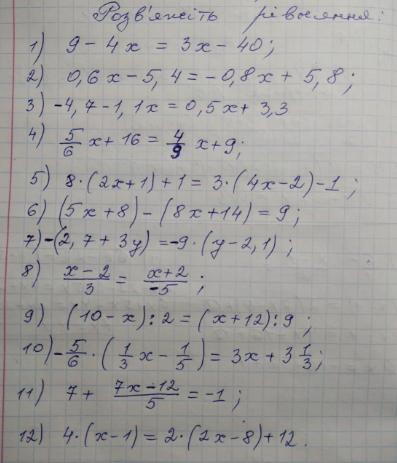 Розв'яжіть рівняння:
1) 9 - 4x = 3x - 40;
2) 0,6x - 5,4 = -0,8x + 5,8;
3) -4,7 - 1,1x = 0,5x + 3,3
4) 5/6 x + 16 = 4/9 x + 9;
5) 8·(2x+1)+1 = 3·(4x-2)-1;
6) (5x+8) - (8x+14) = 9;
7) -(2,7+3y) = -9·(y-2,1);
8) (x-2)/3 = (x+2)/-5;
9) (10-x):2 = (x+12):9;
10) -5/6·(1/3 x - 1/5) = 3x + 3 1/3;
11) 7 + (7x-12)/5 = -1;
12) 4·(x-1) = 2·(2x-8)+12.